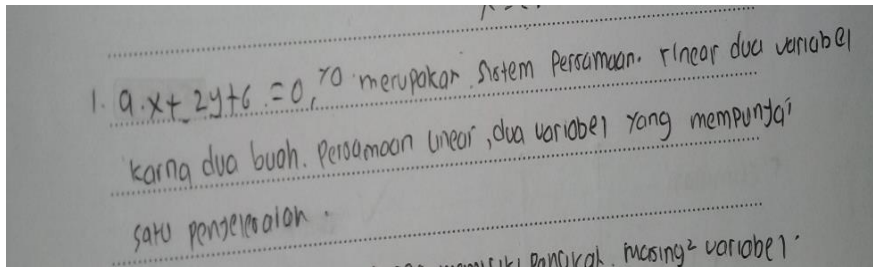 1. a. x + 2y + 6 = 0, yo merupakan sistem Persamaan. linear dua variabel
karna dua buah. Persamaan linear, dua variabel yang mempunyai
satu penyelesaian.
masing² variabel